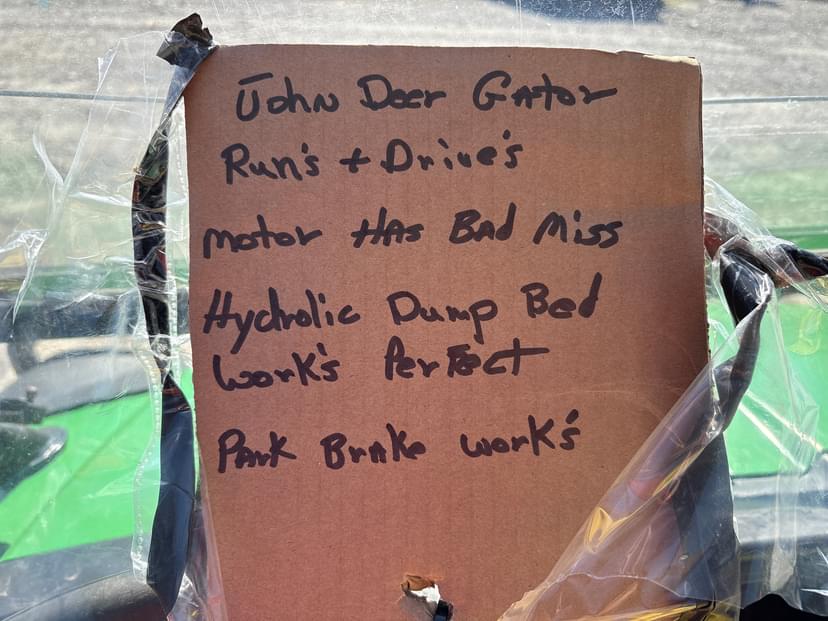 John Deer Gator
Run's + Drive's
Motor HAs BAd Miss
Hydrolic Dump Bed
Work's Perfect
PArk BrAke work's